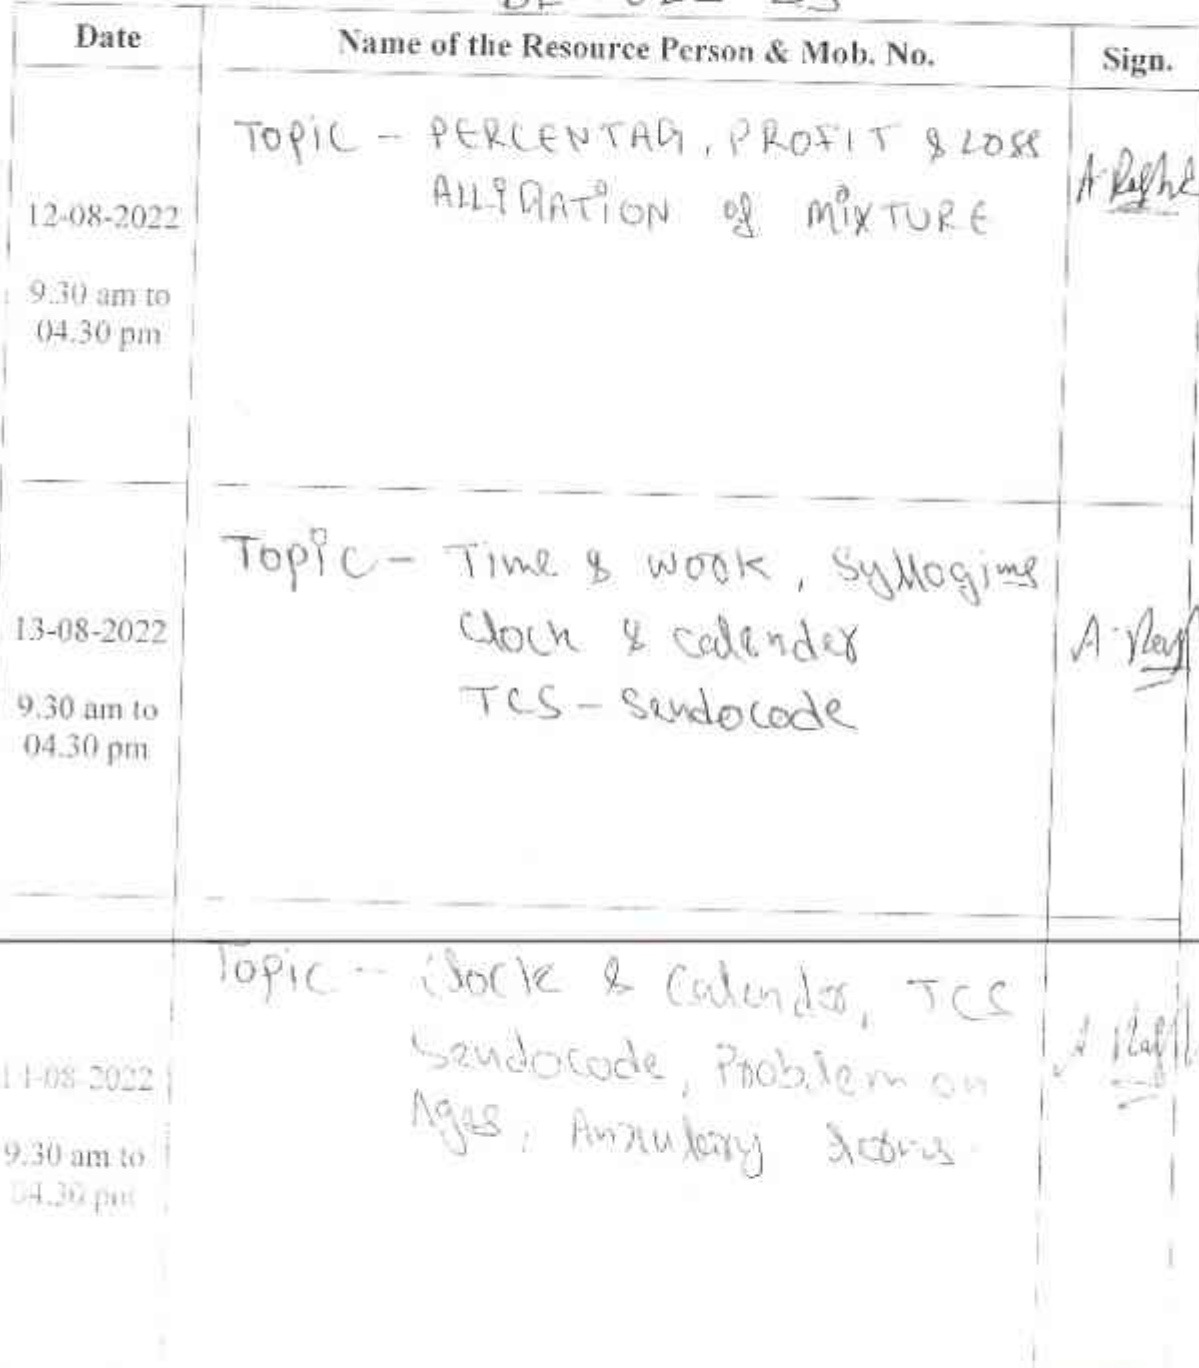 Date
Name of the Resource Person & Mob. No.
Sign.
12-08-2022
9.30 am to
04.30 pm
Topic - PERCENTAG, PROFIT & LOSS
ALLIGATION of MIXTURE
13-08-2022
9.30 am to
04.30 pm
Topic - Time & work, Syllogims
Clock & calender
TCS - Sendocode
14-08-2022
9.30 am to
04.30 pm
Topic - Clock & Calender, TCS
Sendocode, Problem on
Ages,